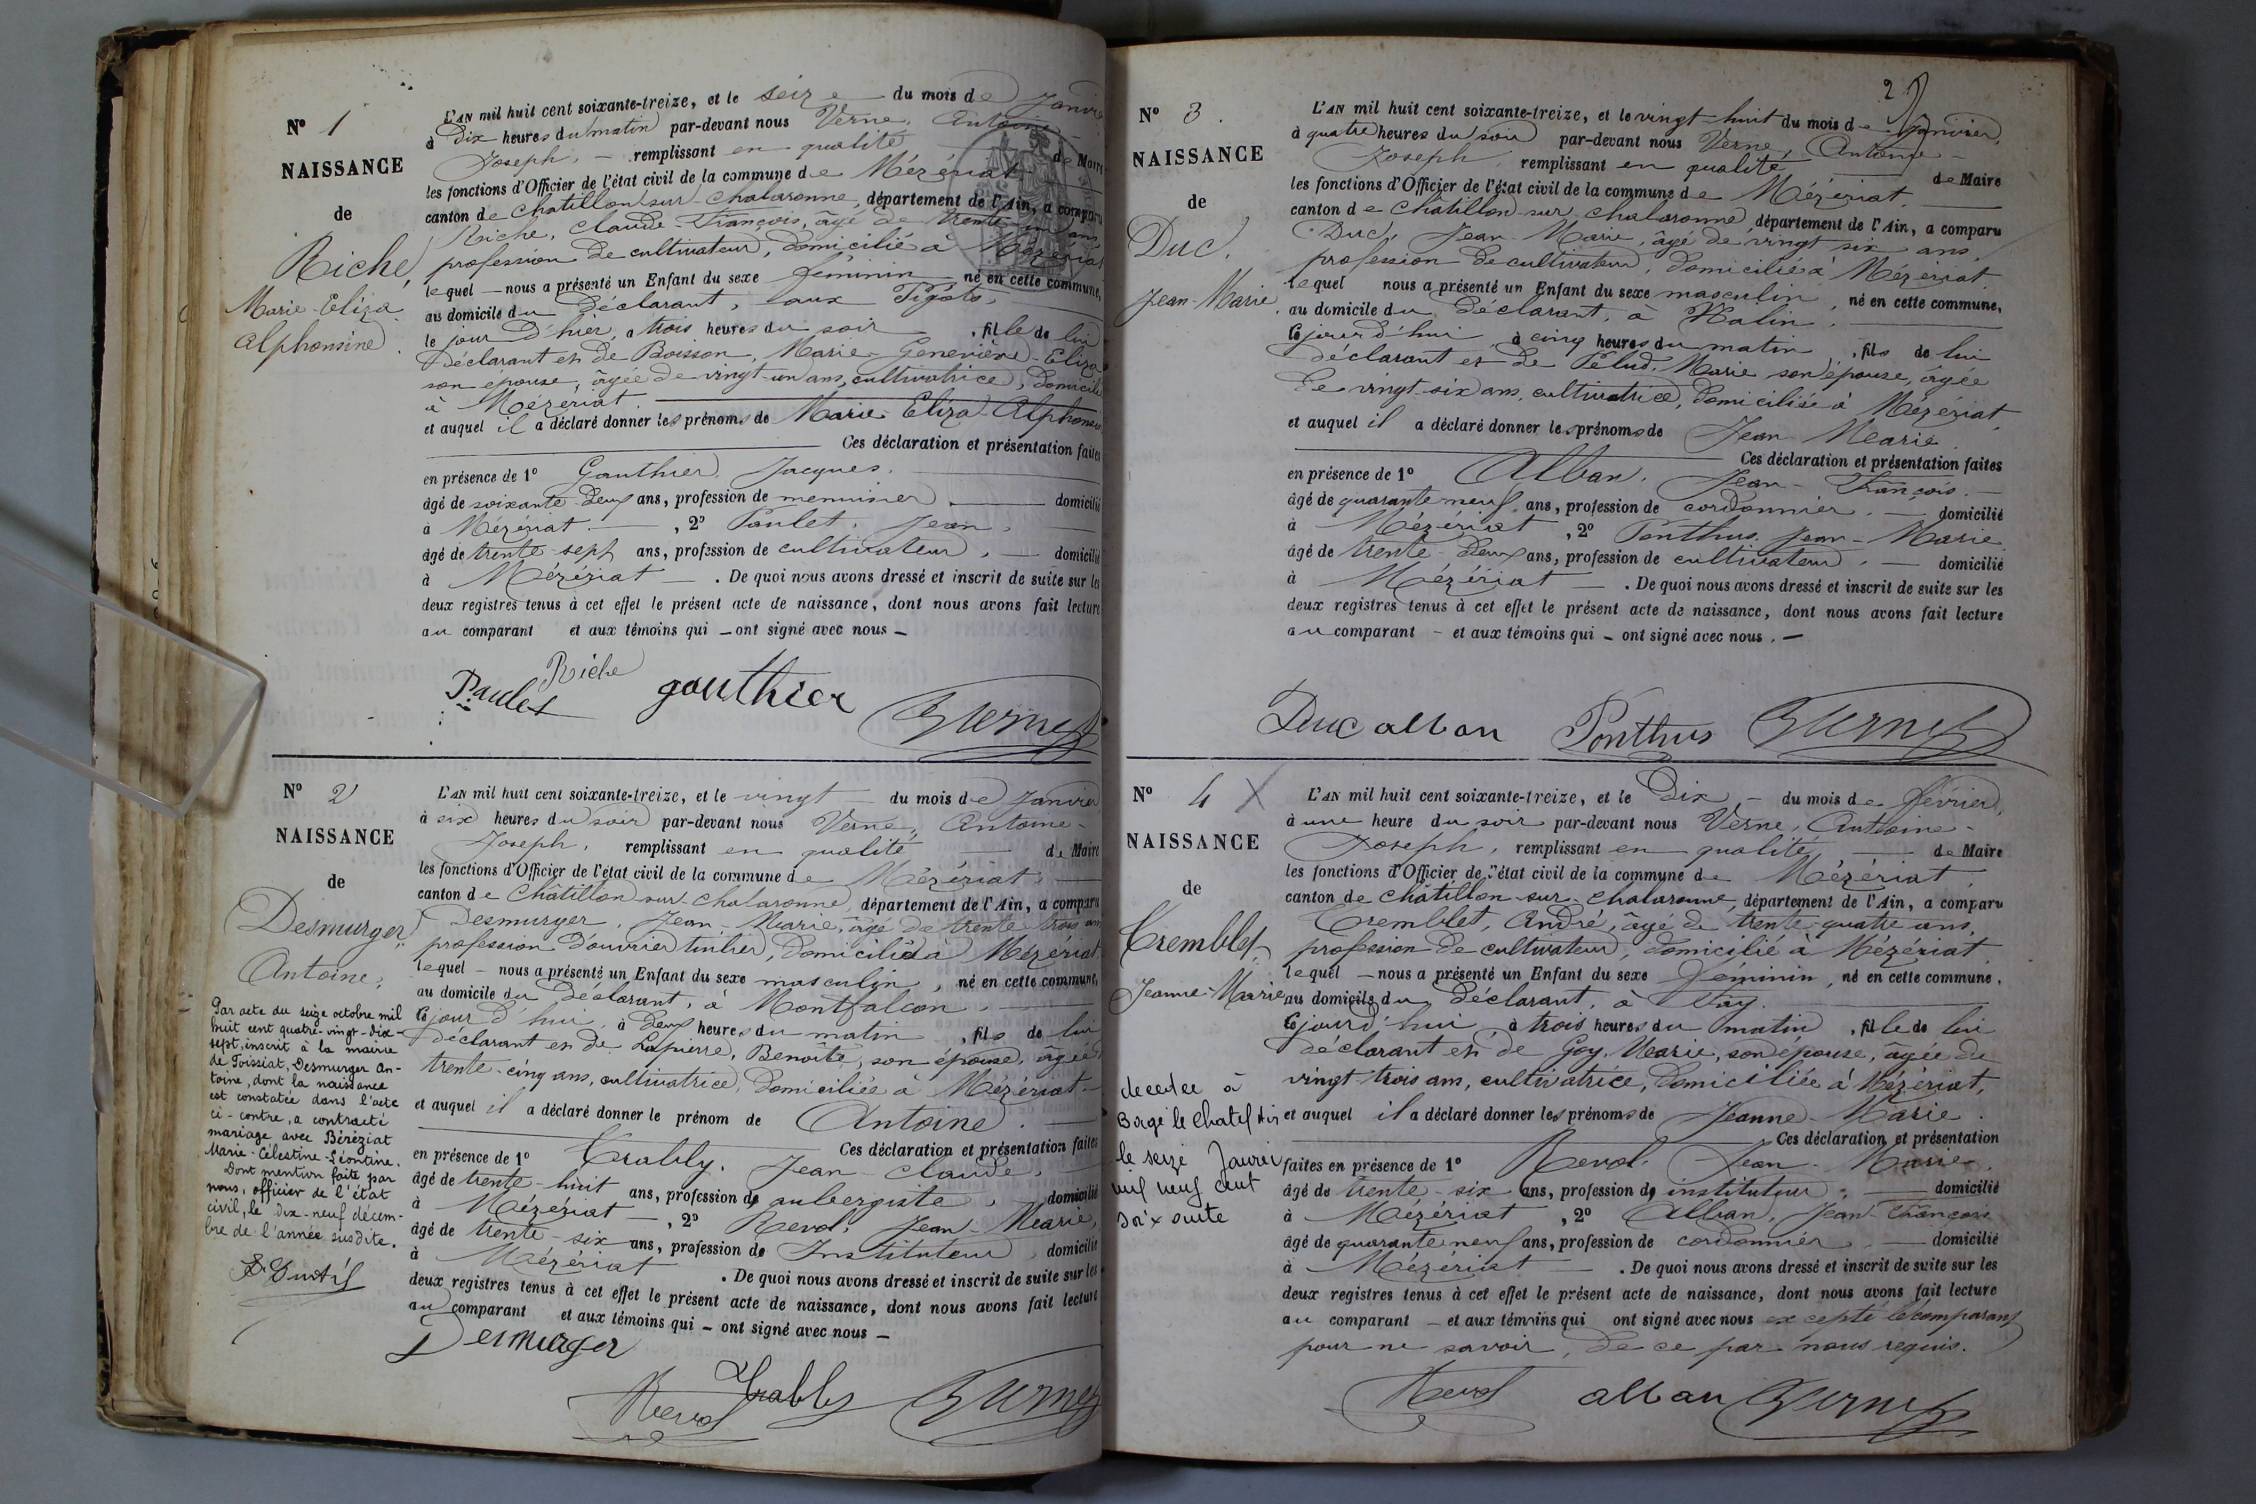 N° 1
NAISSANCE
de
Riche,
Marie-Eliza
Alphonsine.
L'AN mil huit cent soixante-treize, et le seize du mois de Janvier
à Dix heures du matin par-devant nous Verne, Antoine-
Joseph, — remplissant en qualité de Maire
les fonctions d'Officier de l'état civil de la commune de Mézériat
canton de Châtillon-sur-Chalaronne, département de l'Ain, a comparu
Riche, Claude-François, âgé de trente un ans,
profession de cultivateur, domicilié à Mézériat
lequel — nous a présenté un Enfant du sexe féminin né en cette commune,
au domicile du Déclarant, aux Tigots,
le jour d'hier, à trois heures du soir, fille de lui
Déclarant et de Boisson, Marie-Geneviève-Eliza
son épouse, âgée de vingt-un ans, cultivatrice, domiciliée
à Mézériat.
et auquel il a déclaré donner les prénoms de Marie-Eliza-Alphonsine
Ces déclaration et présentation faites
en présence de 1° Gauthier, Jacques,
âgé de soixante-deux ans, profession de menuisier domicilié
à Mézériat, 2° Paulet, Jean,
âgé de trente-sept ans, profession de cultivateur, — domicilié
à Mézériat — . De quoi nous avons dressé et inscrit de suite sur les
deux registres tenus à cet effet le présent acte de naissance, dont nous avons fait lecture
au comparant et aux témoins qui — ont signé avec nous —
Riche
Paulet gauthier Verne
N° 2
NAISSANCE
de
Desmurger,
Antoine,
Par acte du seize octobre mil
huit cent quatre-vingt-dix-
sept, inscrit à la mairie
de Foissiat, Desmurger An-
toine, dont la naissance
est constatée dans l'acte
ci-contre, a contracté
mariage avec Béréziat
Marie-Célestine-Léontine.
Dont mention faite par
nous, officier de l'état
civil, le dix-neuf décem-
bre de l'année susdite.
L'AN mil huit cent soixante-treize, et le vingt du mois de Janvier
à six heures du soir par-devant nous Verne, Antoine-
Joseph, remplissant en qualité — de Maire
les fonctions d'Officier de l'état civil de la commune de Mézériat
canton de Châtillon-sur-Chalaronne, département de l'Ain, a comparu
Desmurger, Jean-Marie, âgé de trente-trois ans
profession d'ouvrier tuilier, domicilié à Mézériat
lequel — nous a présenté un Enfant du sexe masculin, né en cette commune,
au domicile du Déclarant, à Montfalcon,
ce jour d'hui, à deux heures du matin, fils de lui
déclarant et de Lapierre, Benoîte, son épouse, âgée
trente-cinq ans, cultivatrice, domiciliée à Mézériat
et auquel il a déclaré donner le prénom de Antoine.
Ces déclaration et présentation faites
en présence de 1° Trably, Jean-Claude,
âgé de trente-huit ans, profession de aubergiste, domicilié
à Mézériat —, 2° Revol, Jean-Marie,
âgé de trente-six ans, profession de Instituteur, domicilié
à Mézériat . De quoi nous avons dressé et inscrit de suite sur les
deux registres tenus à cet effet le présent acte de naissance, dont nous avons fait lecture
au comparant et aux témoins qui — ont signé avec nous —
Desmurger
Revol Trably Verne
2
N° 3.
NAISSANCE
de
Duc,
Jean-Marie.
L'AN mil huit cent soixante-treize, et le vingt-huit du mois de Janvier,
à quatre heures du soir par-devant nous Verne, Antoine-
Joseph, remplissant en qualité — de Maire
les fonctions d'Officier de l'état civil de la commune de Mézériat.
canton de Châtillon-sur-Chalaronne, département de l'Ain, a comparu
Duc, Jean-Marie, âgé de vingt-six ans,
profession de cultivateur, domicilié à Mézériat,
lequel nous a présenté un Enfant du sexe masculin, né en cette commune,
au domicile du Déclarant, à
ce jour d'hui, à cinq heures du matin, fils de lui
déclarant et de Pélud, Marie son épouse, âgée
de vingt-six ans, cultivatrice, domiciliée à Mézériat,
et auquel il a déclaré donner les prénoms de Jean-Marie.
Ces déclaration et présentation faites
en présence de 1° Alban, Jean-François, —
âgé de quarante-neuf ans, profession de cordonnier, — domicilié
à Mézériat, 2° Ponthus, Jean-Marie
âgé de trente-deux ans, profession de cultivateur, — domicilié
à Mézériat — . De quoi nous avons dressé et inscrit de suite sur les
deux registres tenus à cet effet le présent acte de naissance, dont nous avons fait lecture
au comparant — et aux témoins qui — ont signé avec nous. —
Duc alban Ponthus Verne
N° 4 X
NAISSANCE
de
Tremblet,
Jeanne-Marie
decedee à
Bagé le Chatel Ain
le seize Janvier
mil neuf cent
L'AN mil huit cent soixante-treize, et le Dix, — du mois de Février,
à une heure du soir par-devant nous Verne, Antoine-
Joseph, remplissant en qualité — de Maire
les fonctions d'Officier de l'état civil de la commune de Mézériat,
canton de Châtillon-sur-Chalaronne, département de l'Ain, a comparu
Tremblet, André, âgé de trente-quatre ans,
profession de cultivateur, domicilié à Mézériat,
lequel — nous a présenté un Enfant du sexe féminin, né en cette commune,
au domicile du Déclarant, à
ce jourd'hui, à trois heures du matin, fille de lui
déclarant et de Goy, Marie, son épouse, âgée de
vingt-trois ans, cultivatrice, domiciliée à Mézériat,
et auquel il a déclaré donner les prénoms de Jeanne-Marie.
Ces déclaration et présentation
faites en présence de 1° Revol, Jean-Marie,
âgé de trente-six ans, profession de instituteur, — domicilié
à Mézériat, 2° Alban, Jean-François
âgé de quarante-neuf ans, profession de cordonnier, — domicilié
à Mézériat — . De quoi nous avons dressé et inscrit de suite sur les
deux registres tenus à cet effet le présent acte de naissance, dont nous avons fait lecture
au comparant — et aux témoins qui ont signé avec nous excepté le comparant
pour ne savoir, de ce par nous requis.
Revol alban Verne